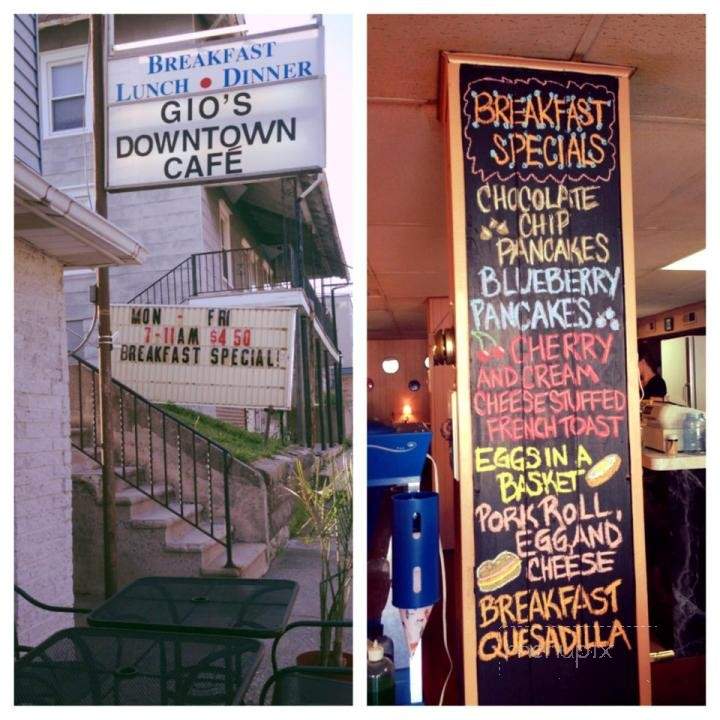 BREAKFAST
LUNCH • DINNER
GIO'S
DOWNTOWN
CAFÉ
MON - FRI
7-11AM $4 50
BREAKFAST SPECIAL!
BREAKFAST
SPECIALS
CHOCOLATE
CHIP
PANCAKES
BLUEBERRY
PANCAKES
CHERRY
AND CREAM
CHEESE STUFFED
FRENCH TOAST
EGGS IN A
BASKET
PORK ROLL,
EGG, AND
CHEESE
BREAKFAST
QUESADILLA
menupix